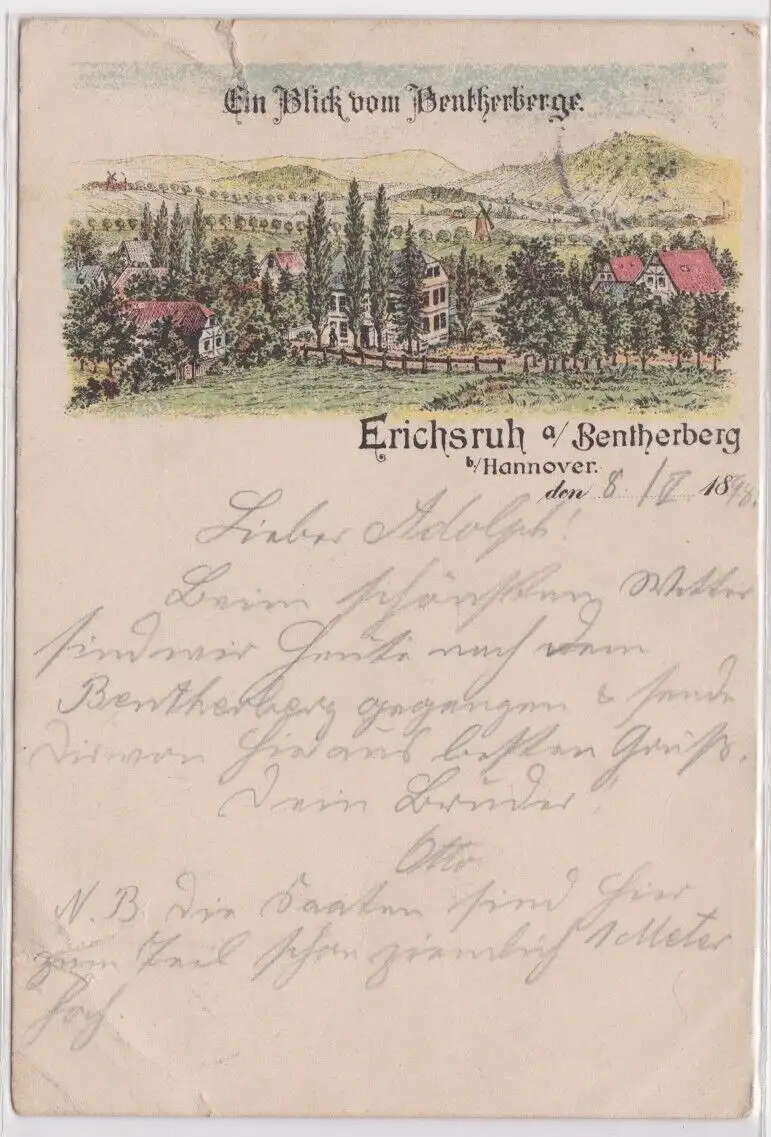 Ein Blick vom Bentherberge.
Erichsruh a/ Bentherberg
b/Hannover.
den 8/V 1898.
Lieber Adolph!
Beim schönsten Wetter
sind wir heute nach dem
Bentherberg gegangen & sende
Dir von hier aus besten Gruß.
Dein Bruder
Otto
N.B. Die Saaten sind hier
zum Teil schon ziemlich 1 Meter
hoch